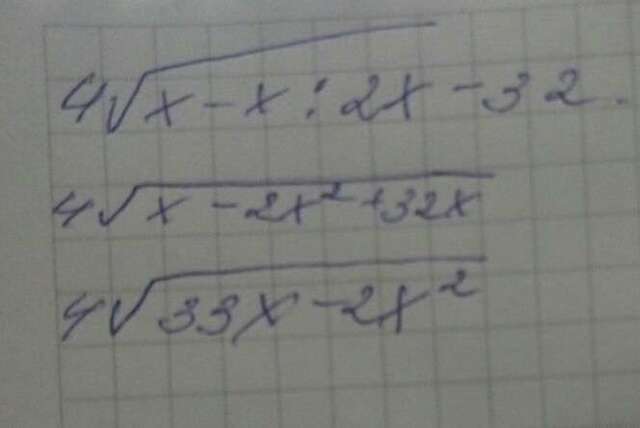 4√x-x:2x-32.
4√x-2x²+32x
4√33x-2x²